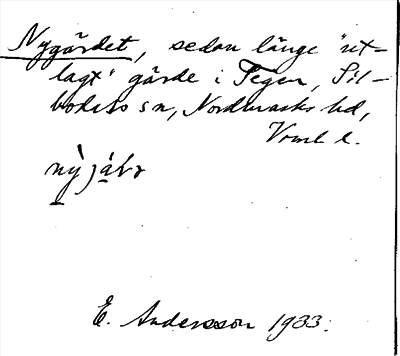 Nygärdet, sedan länge "ut-
lagt" gärde i Tegen, Sil-
bodals sn, Nordmarks hd,
Vrml l.
E. Andersson 1933.